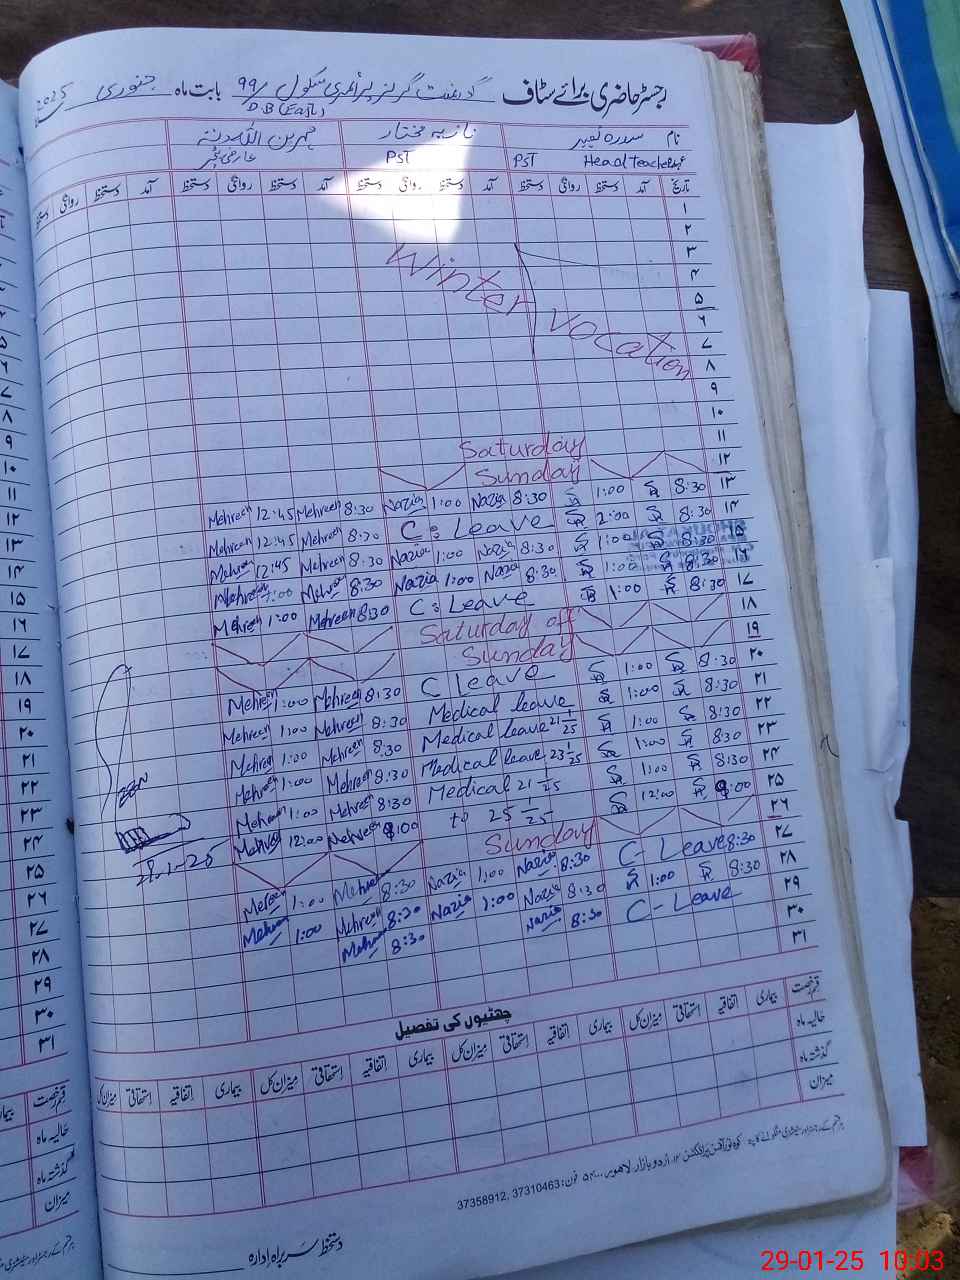 رجسٹر حاضری برائے سٹاف گورنمنٹ گرلز پرائمری سکول 99/ بابت ماہ جنوری 2025
D.B (East)
نام سدرہ نصیر نازیہ مختار
Head Teacher PST PST عارضی ٹیچر
تاریخ آمد دستخط روانگی دستخط آمد دستخط روانگی دستخط آمد دستخط روانگی دستخط آمد دستخط روانگی دستخط
۱
۲
۳ Winter
۴
۵
۶ Vocation
۷
۸
۹
۱۰
۱۱ Saturday
۱۲ Sunday
۱۳ 8:30 1:00 8:30 Nazia 1:00 Nazia 8:30 Mehreen 12:45 Mehreen
۱۴ 8:30 2:00 C: Leave 8:30 Mehreen 12:45 Mehreen
۱۵ 8:30 1:00 8:30 Nazia 1:00 Nazia 8:30 Mehreen 12:45 Mehreen
۱۶ 8:30 1:00 8:30 Nazia 1:00 Nazia 8:30 Mehreen 1:00 Mehreen
۱۷ 8:30 1:00 C: Leave 8:30 Mehreen 1:00 Mehreen
۱۸ Saturday off
۱۹ Sunday
۲۰ 8:30 1:00 C Leave 8:30 Mehreen 1:00 Mehreen
۲۱ 8:30 1:00 Medical leave 8:30 Mehreen 1:00 Mehreen
۲۲ 8:30 1:00 Medical leave 21 1/25 8:30 Mehreen 1:00 Mehreen
۲۳ 8:30 1:00 Medical leave 23 1/25 8:30 Mehreen 1:00 Mehreen
۲۴ 8:30 1:00 Medical 21 1/25 8:30 Mehreen 1:00 Mehreen
۲۵ 9:00 12:00 to 25 1/25 9:00 Mehreen 12:00 Mehreen
۲۶ Sunday
۲۷ C- Leave 8:30 8:30 Nazia 1:00 Nazia 8:30 Mehreen 1:00 Mehreen
۲۸ 8:30 1:00 8:30 Nazia 1:00 Nazia 8:30 Mehreen 1:00 Mehreen
۲۹ C- Leave 8:30 Nazia 8:30 Mehreen
۳۰
۳۱
چھٹیوں کی تفصیل
قسم رخصت بیماری اتفاقیہ استحقاقی میزان کل بیماری اتفاقیہ استحقاقی میزان کل بیماری اتفاقیہ استحقاقی میزان کل بیماری اتفاقیہ استحقاقی میزان کل
حالیہ ماہ
گذشتہ ماہ
میزان
اردو بازار، لاہور فون: 37310463, 37358912
دستخط سربراہ ادارہ
۷
۸
۹
۱۰
۱۱
۱۲
۱۳
۱۴
۱۵
۱۶
۱۷
۱۸
۱۹
۲۰
۲۱
۲۲
۲۳
۲۴
۲۵
۲۶
۲۷
۲۸
۲۹
۳۰
۳۱
قسم رخصت
حالیہ ماہ
گذشتہ ماہ
میزان
29-01-25 10:03